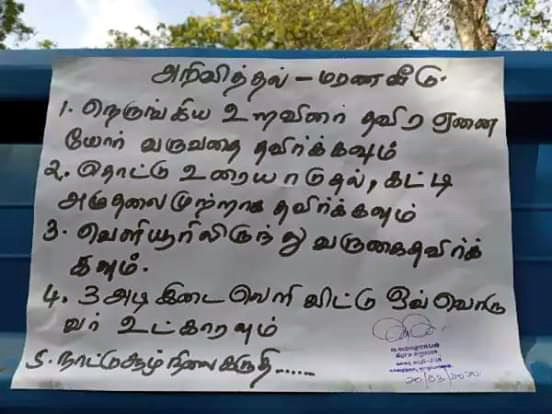 அறிவித்தல் – மரணவீடு.
1. நெருங்கிய உறவினர் தவிர ஏனை
யோர் வருவதை தவிர்க்கவும்
2. தொட்டு உரையாடுதல், கட்டி
அழுதலை முற்றாக தவிர்க்கவும்
3. வெளியூரிலிருந்து வருகை தவிர்க்
கவும்.
4. 3 அடி இடைவெளி விட்டு ஒவ்வொரு
வர் உட்காரவும்
5. நாட்டு சூழ்நிலை கருதி......
20/03/2020